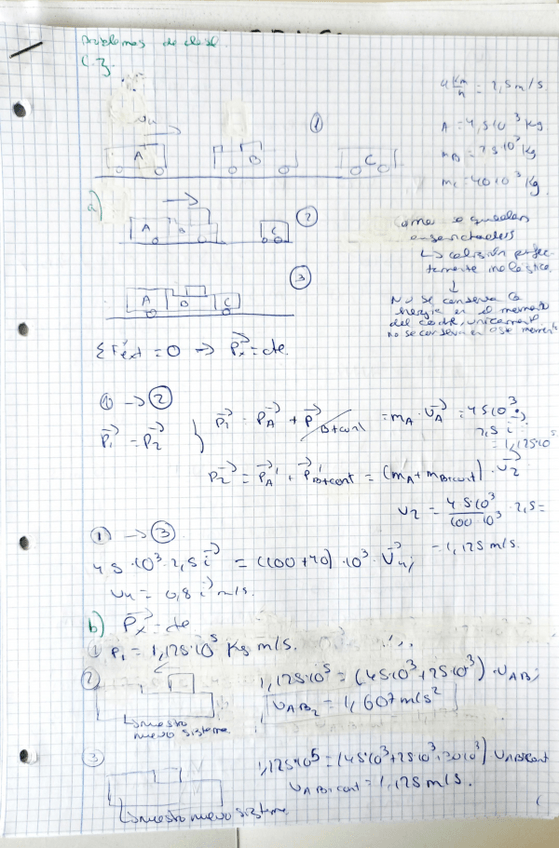 Problemas de clase.
A
B
C
①
= 2,5 m/s
A = 45·10³ Kg
m_B = 25·10³ Kg
m_C = 40·10³ Kg.
a)
A
B
C
②
Como se quedan
enganchados
↳ colisión perfec-
tamente inelástica.
↓
No se conserva la
energía en el momento
del choque, unicamente
no se conserva en ese momento
③
A
B
C
ΣFext = 0 → Px = cte.
① → ②
P1 = P2
P1 = PA + PB+cont = mA · vA = 45·10³ ·
2,5 i
= 1,125·10⁵
P2 = PA' + P'B+cont = (mA + mB+cont) · v2
v2 = 45·10³ / 100·10³ · 2,5 =
= 1,125 m/s.
① → ③
45·10³ · 2,5 i = (100+40) ·10³ · V4;
v4 = 0,8 i m/s.
b) Px = cte
① P1 = 1,125·10⁵ Kg m/s.
②
1,125·10⁵ = (45·10³ + 25·10³) · vAB;
vAB2 = 1,607 m/s²
↳ nuestro
nuevo sistema
③
1,125·10⁵ = (45·10³ + 25·10³ + 30·10³) vABcont
vAB+cont = 1,125 m/s.
↳ nuestro nuevo sistema